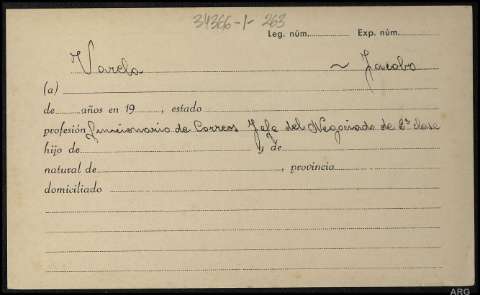 34366-1-263
Leg. núm. Exp. núm.
Varela ~ Jacobo
(a)
de años en 19 , estado
profesión funcionario de Correos Jefe del Negociado de 2ª clase
hijo de y de
natural de , provincia
domiciliado
ARG